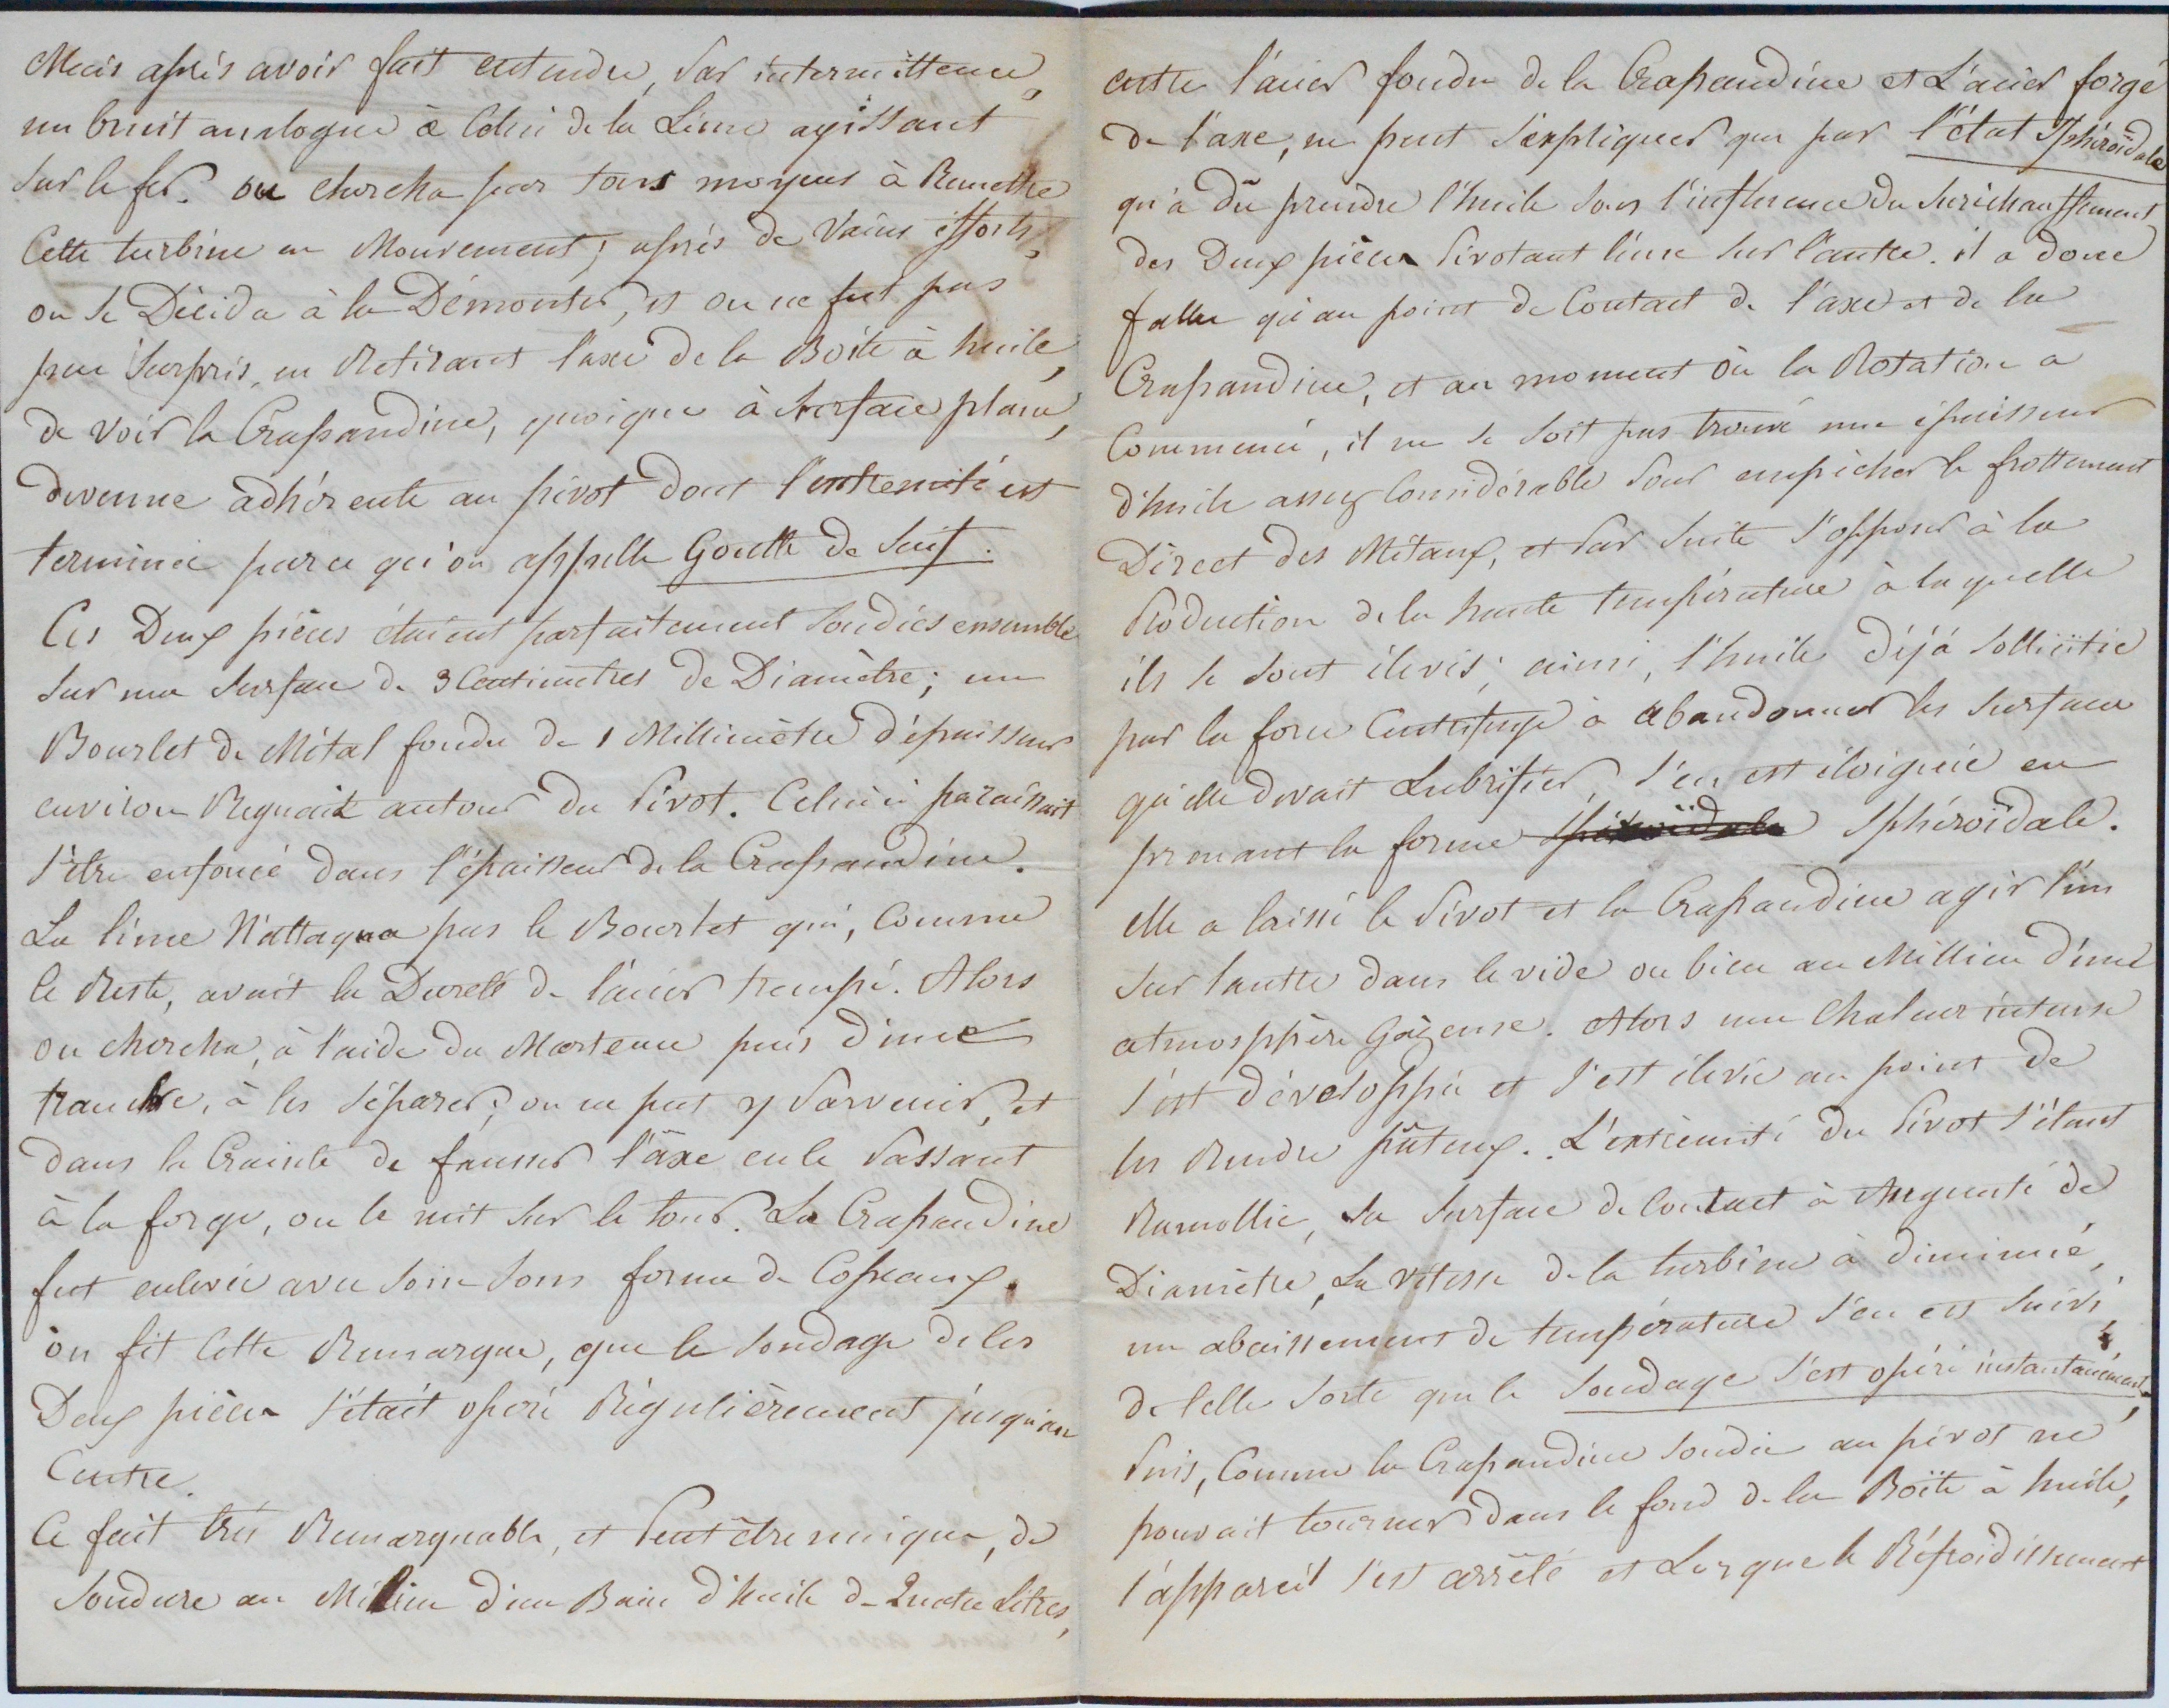 Mais après avoir fait entendre, Par intermittence,
un bruit analogue à Celui de la Lime agissant
sur le fer. on chercha par tous moyens à Remettre
Cette turbine en Mouvement; après de Vains efforts,
on se Décida à la Démonter, et on ne fut pas
peu Surpris, en Retirant l'axe de la Boîte à huile,
de voir la Crapaudine, quoique à Surface plane,
devenue adhérente au pivot dont l'extremité est
terminée par ce qu'on appelle Goutte de Suif.
Ces Deux pièces étaient parfaitement Soudées ensemble
Sur une Surface de 3 Centimètres de Diamètre; un
Bourlet de Métal fondu de 1 Millimètre d'épaisseur
environ Regnait autour du Pivot. Celui ci paraissait
s'être enfoncé dans l'épaisseur de la Crapaudine.
La lime N'attaqua pas le Bourlet qui, Comme
le Reste, avait la Dureté de l'acier trempé. Alors
on chercha, à l'aide du Marteau puis d'une
tranche, à les séparer; on ne put y Parvenir, et
dans la Crainte de fausser l'axe en le Passant
à la forge, on le mit sur le tour. La Crapaudine
fut enlevée avec Soin Sous forme de Copeaux.
on fit Cette Remarque, que le Soudage de ces
Deux pièces s'était opéré Régulièrement jusqu'au
Centre.
Ce fait très Remarquable, et Peut être unique, de
Soudure au Milieu d'un Bain d'huile de Quatre Litres,
entre l'acier fondu de la Crapaudine et L'acier forgé
de l'axe, ne peut s'expliquer que par l'état Sphéroïdale
qu'a dû prendre l'huile sous l'influence du Surichauffement
des Deux pièces Pivotant l'une sur l'autre. il a donc
fallu qu'au point de Contact de l'axe et de la
Crapaudine, et au moment où la Rotation a
Commencé, il ne se soit pas trouvé une épaisseur
d'huile assez Considérable Pour empêcher le frottement
Direct des Métaux, et Par Suite s'opposer à la
Production de la haute température à laquelle
ils se sont élevés; ainsi, l'huile déjà Sollicitée
par la force Centrifuge à abandonner les Surfaces
qu'elle devait Lubrifier, s'en est éloignée en
prenant la forme Sphéroïdale.
elle a laissé le Pivot et la Crapaudine agir l'un
sur l'autre dans le vide ou bien au Millieu d'une
atmospphère Gazeuse. Alors une Chaleur intense
s'est développée et s'est élevée au point de
les Rendre pâteux. L'extremité du Pivot s'étant
Ramollie, Sa Surface de Contact à Augmenté de
Diamètre, La Vitesse de la turbine à diminué,
un abaissement de température s'en est suivi,
de telle Sorte que le Soudage s'est opéré instantanément,
Puis, Comme la Crapaudine Soudée au pivot ne
pouvait tourner dans le fond de la Boîte à huile,
l'appareil s'est arrêté et Lorsque le Réfroidissement